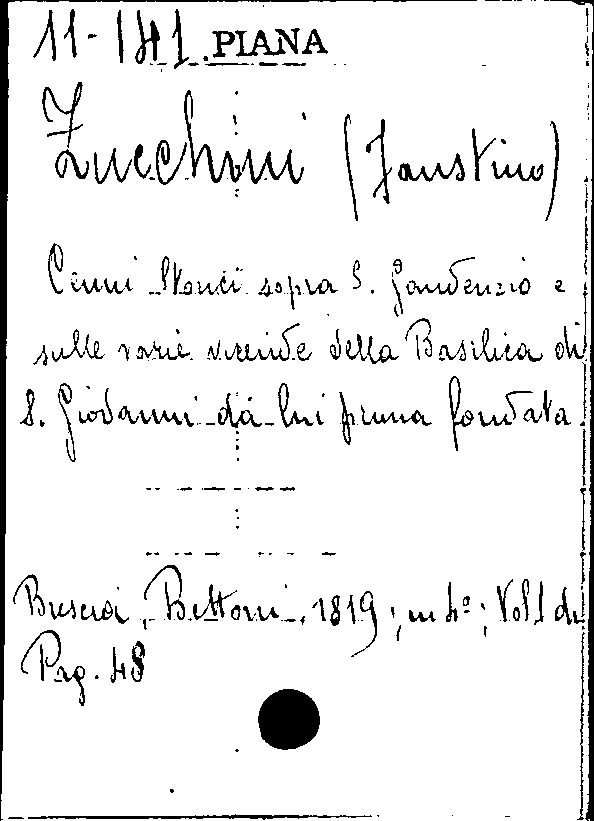 11-141 PIANA
Zucchini (Faustino)
Cenni Storici sopra S. Gaudenzio e
sulle varie vicende della Basilica di
S. Giovanni da lui prima fondata.
Brescia, Bettoni, 1819; in 4º; Vol 1 di
Pag. 48